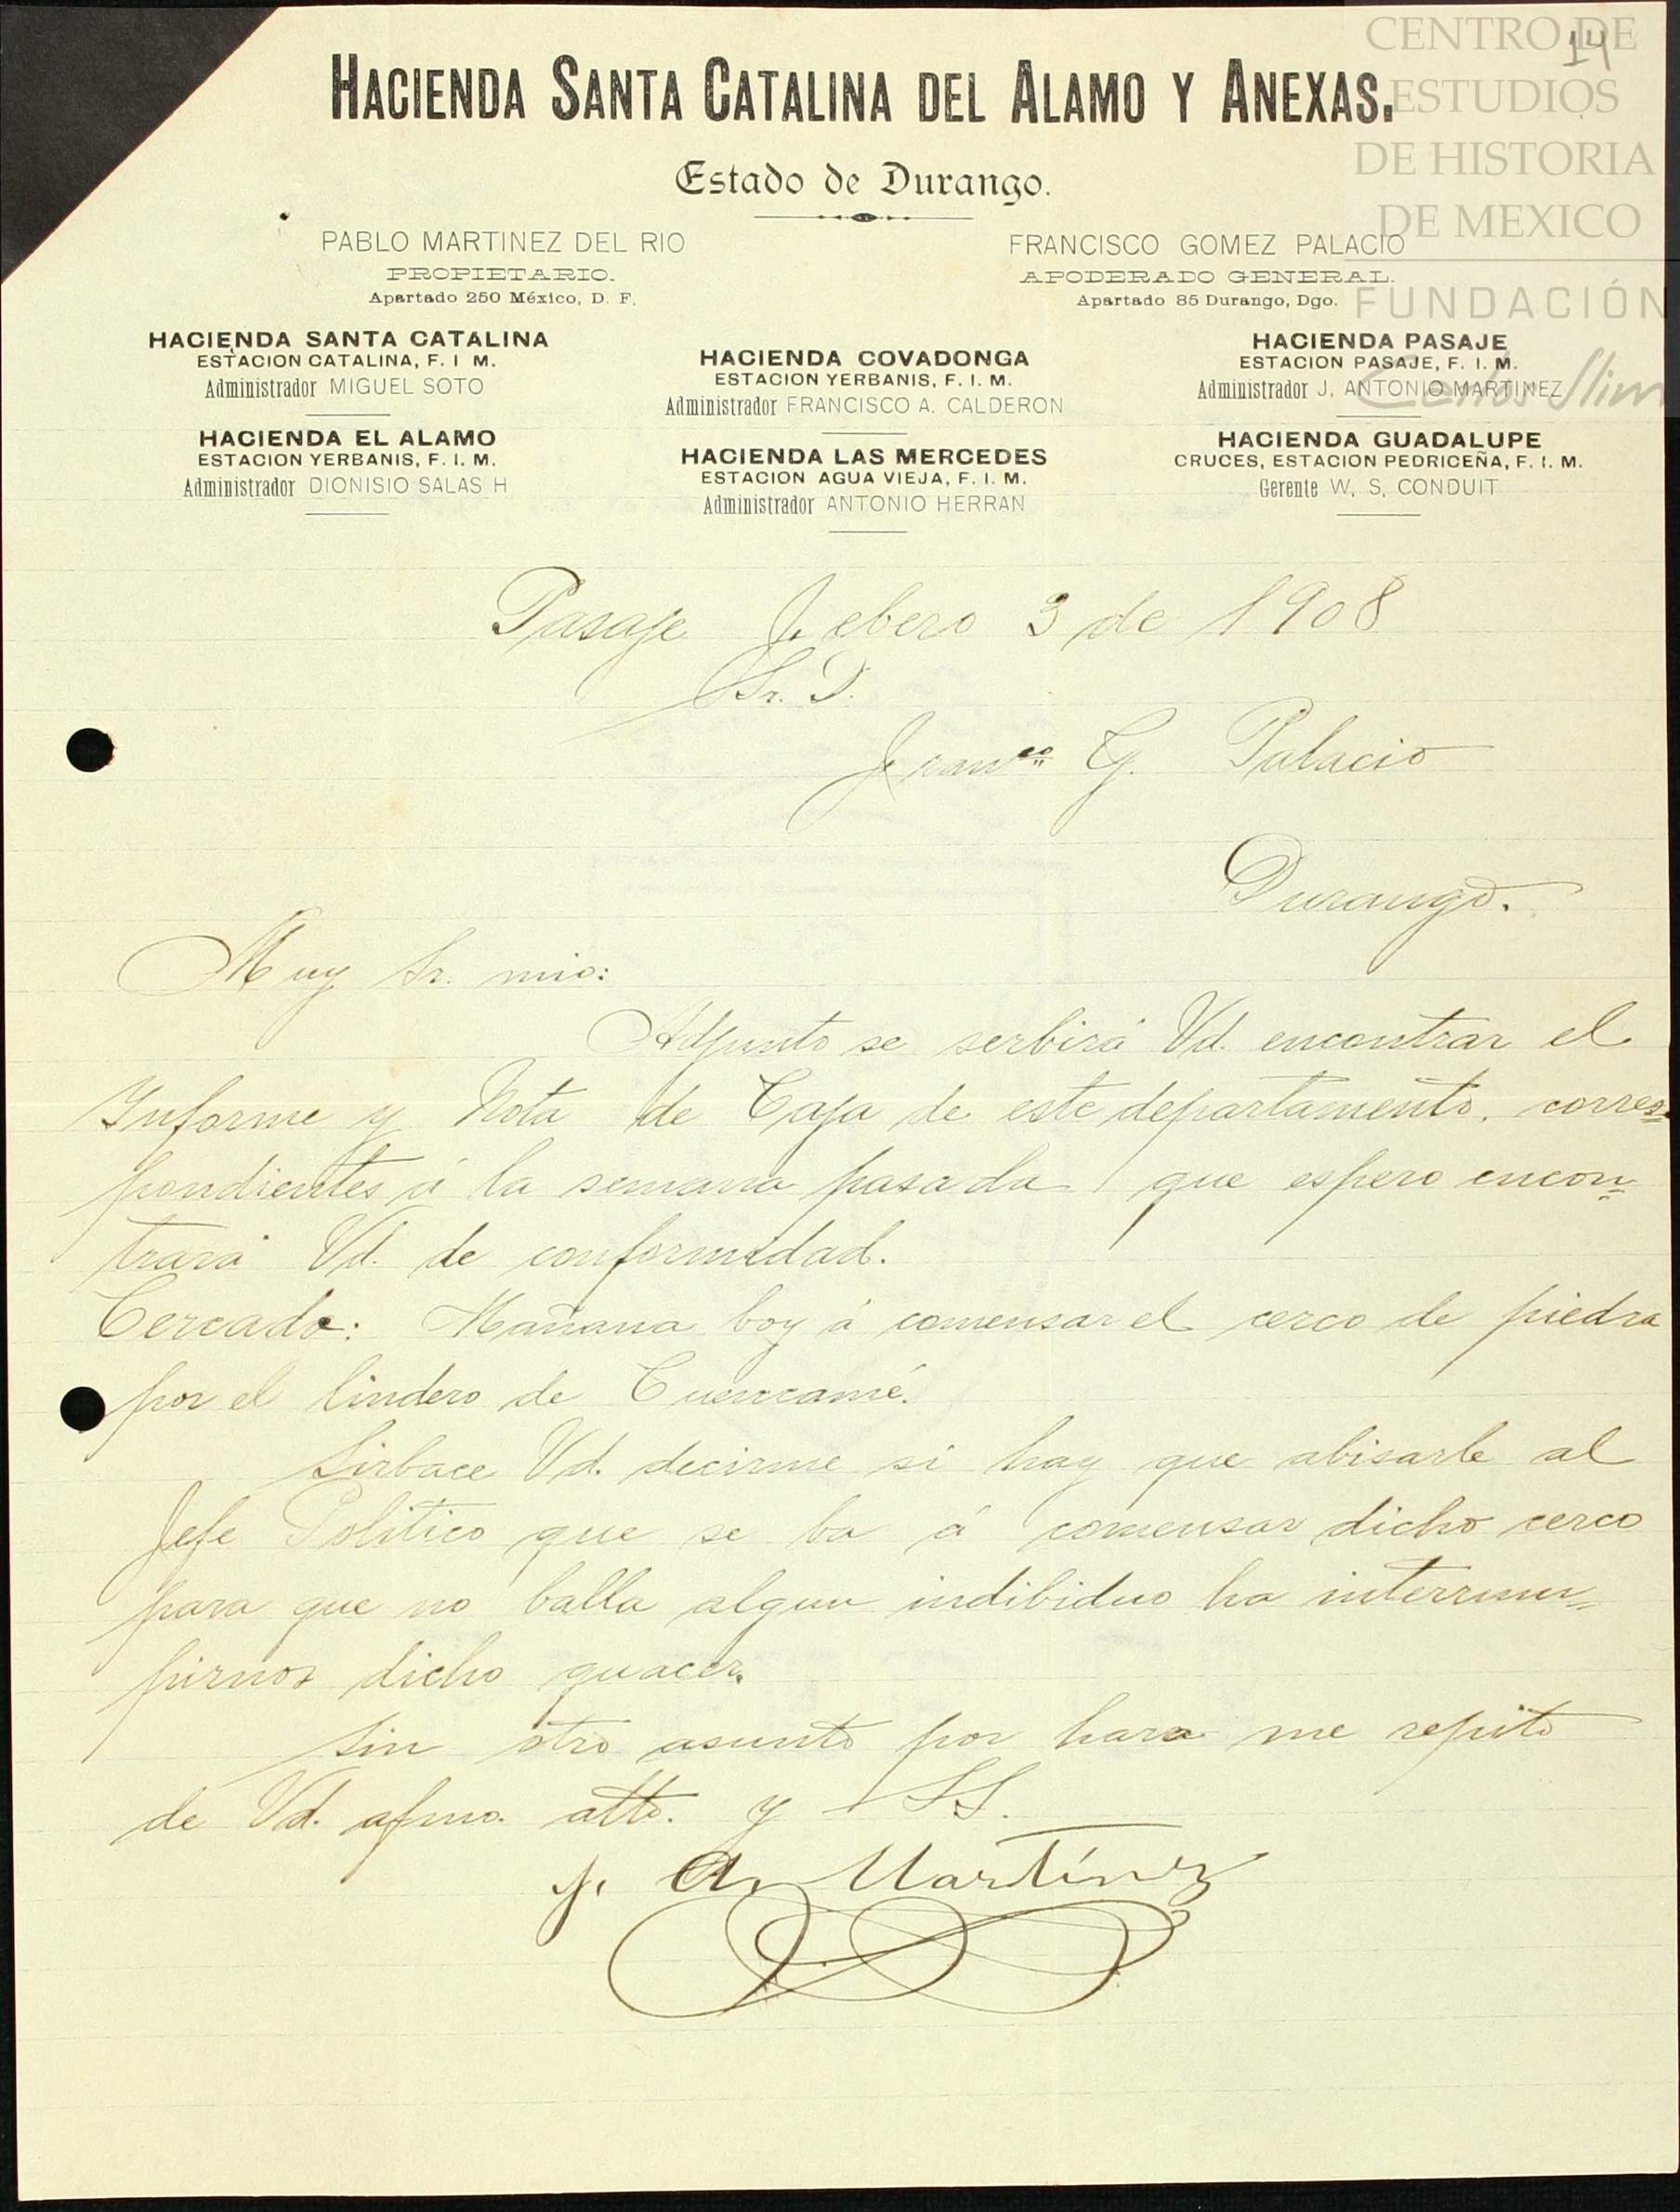 CENTRO DE
14
ESTUDIOS
DE HISTORIA
DE MEXICO
FUNDACIÓN
Carlos Slim
HACIENDA SANTA CATALINA DEL ALAMO Y ANEXAS.
Estado de Durango.
PABLO MARTINEZ DEL RIO
PROPIETARIO.
Apartado 250 México, D. F.
FRANCISCO GOMEZ PALACIO
APODERADO GENERAL.
Apartado 85 Durango, Dgo.
HACIENDA SANTA CATALINA
ESTACION CATALINA, F. I M.
Administrador MIGUEL SOTO
HACIENDA EL ALAMO
ESTACION YERBANIS, F. I. M.
Administrador DIONISIO SALAS H
HACIENDA COVADONGA
ESTACION YERBANIS, F. I. M.
Administrador FRANCISCO A. CALDERON
HACIENDA LAS MERCEDES
ESTACION AGUA VIEJA, F. I. M.
Administrador ANTONIO HERRAN
HACIENDA PASAJE
ESTACION PASAJE, F. I. M.
Administrador J, ANTONIO MARTINEZ
HACIENDA GUADALUPE
CRUCES, ESTACION PEDRICEÑA, F. I. M.
Gerente W, S, CONDUIT
Pasaje Febero 3 de 1908
Sr. D.
Franco G. Palacio
Durango.
Muy Sr. mio:
Adjunto se serbirá Vd. encontrar el
Informe y Nota de Caja de este departamento. corres=
pondientes á la semana pasada que espero encon=
trará Vd. de conformidad.
Cercado: Mañana boy á comensar el cerco de piedra
por el lindero de Cuencamé.
Sirbace Vd. decirme si hay que abisarle al
Jefe Politico que se ba á comensar dicho cerco
para que no balla algun indibiduo ha interrum=
pirnos dicho quacer.
Sin otro asunto por hara me repito
de Vd. afmo. atto. y SS.
J. A. Martínez